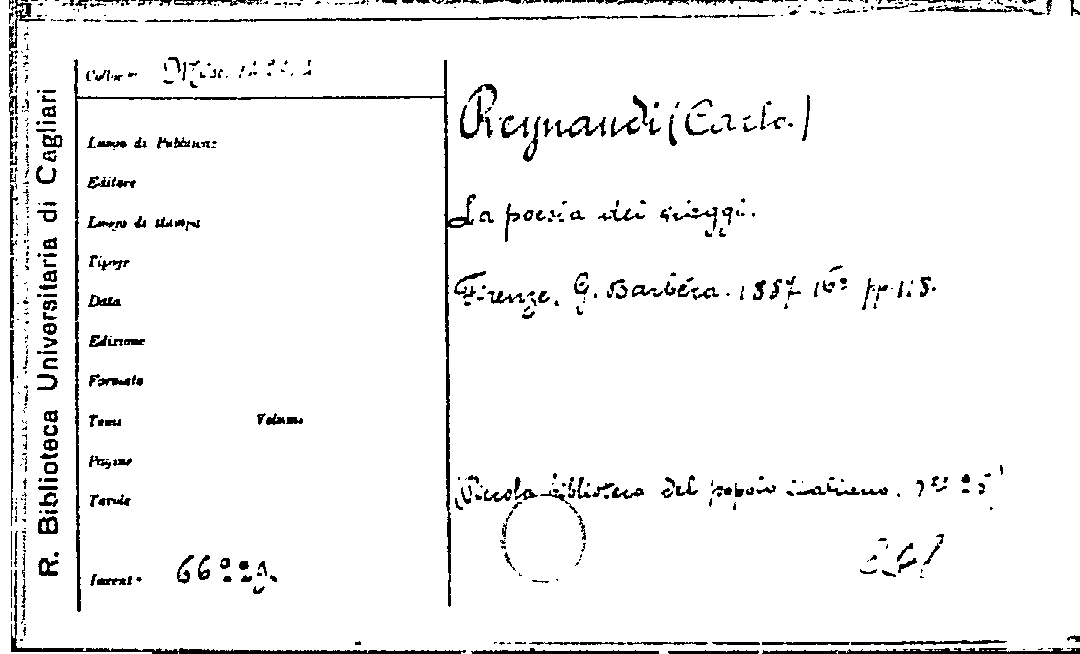 R. Biblioteca Universitaria di Cagliari
Collocne Misc.
Luogo di Pubblicne
Editore
Luogo di stampa
Tipogr
Data
Edizione
Formato
Tomi Volume
Pagine
Tavole
Invent°
Reynaudi (Carlo)
La poesia dei viaggi.
Firenze, G. Barbèra. 1887 16° pp.
(Piccola biblioteca del popolo italiano.